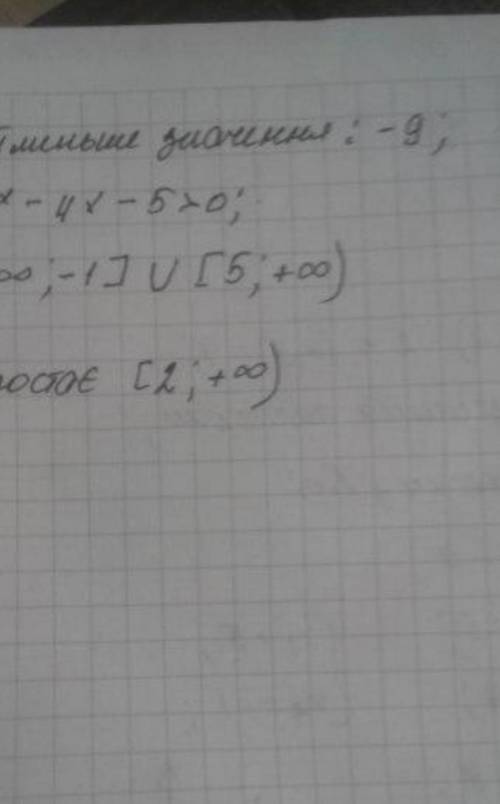 йменьше значення: -9;
x - 4x - 5 > 0;
∞; -1] ∪ [5; +∞)
ростає [2; +∞)